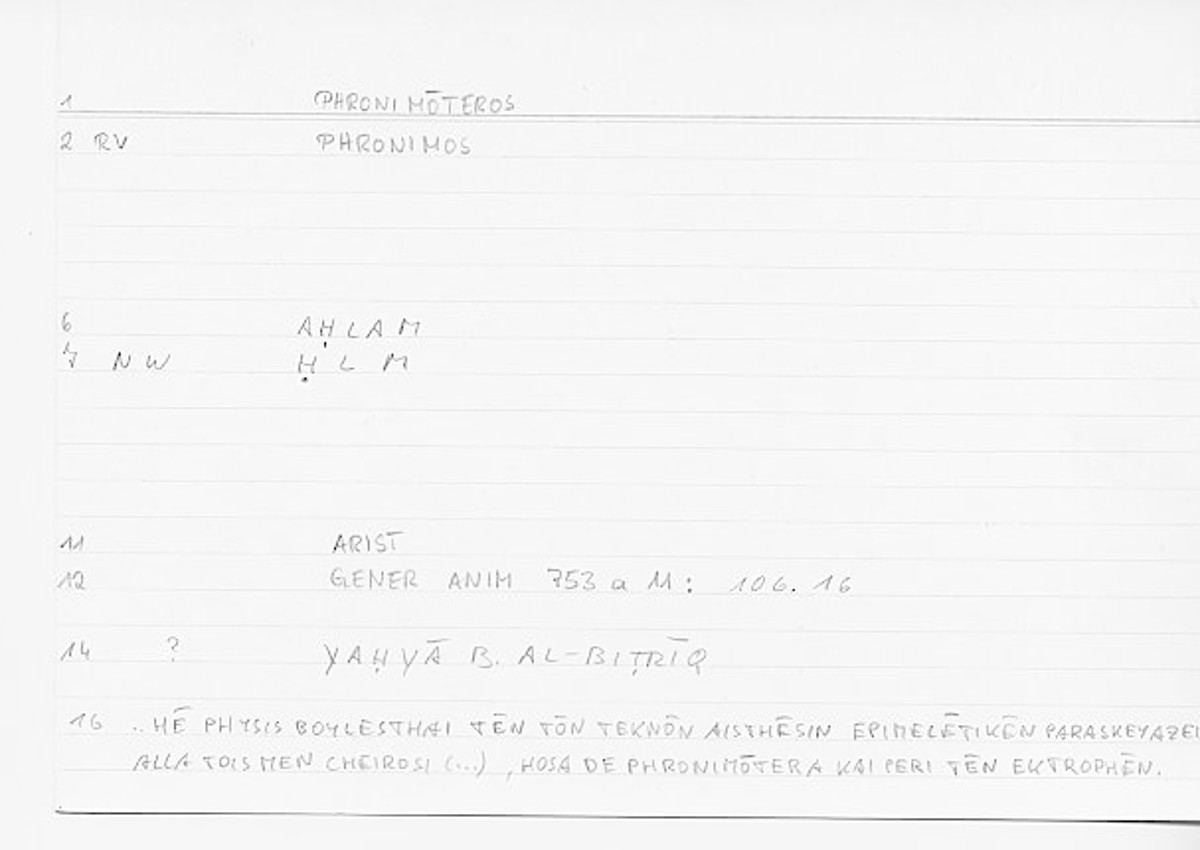 1 PHRONIMŌTEROS
2 RV PHRONIMOS
6 AḤLAM
7 NW ḤLM
11 ARIST
12 GENER ANIM 753 a 11: 106. 16
14 ? YAḤYĀ B. AL-BIṬRĪQ
16 ..HĒ PHYSIS BOYLESTHAI TĒN TŌN TEKNŌN AISTHĒSIN EPIMELĒTIKĒN PARASKEYAZEI
ALLA TOIS MEN CHEIROSI (...), HOSA DE PHRONIMŌTERA KAI PERI TĒN EKTROPHĒN.